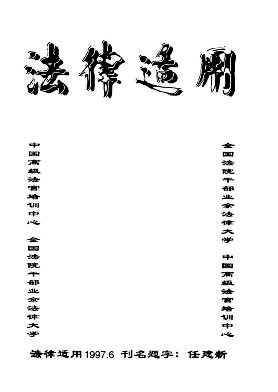 法律适用
中国高级法官培训中心 全国法院干部业余法律大学
全国法院干部业余法律大学 中国高级法官培训中心
法律适用 1997.6 刊名题字：任建新